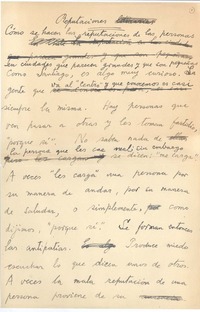 Reputaciones
Como se hacen las reputaciones de las personas
en ciudades que parecen grandes y que son pequeñas
como Santiago, es algo muy curioso.
va al "centro" y que
gente que
siempre la misma. Hay personas que
ven pasar a otros y los toman fastidio,
"porque sí". No saben nada de
persona que les cae mal; sin embargo
se dicen: "me carga"
A veces "les carga" una persona por
su manera de andar, por su manera
de saludar, o simplemente, como
dijimos, "porque sí". Se forman entonces
las antipatías. Produce miedo
escuchar lo que dicen unos de otros.
A veces la mala reputación de una
persona proviene de su